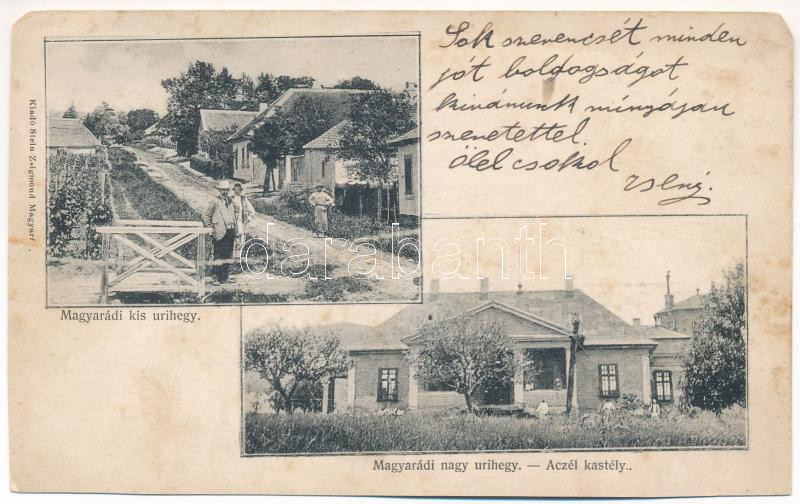 Sok szerencsét minden
jót boldogságot
kivánunk mindjájan
szeretettel.
Ölel csokol
Kiadó Stein Zsigmond Magyar
Magyarádi kis urihegy.
darabanth
Magyarádi nagy urihegy. — Aczél kastély..